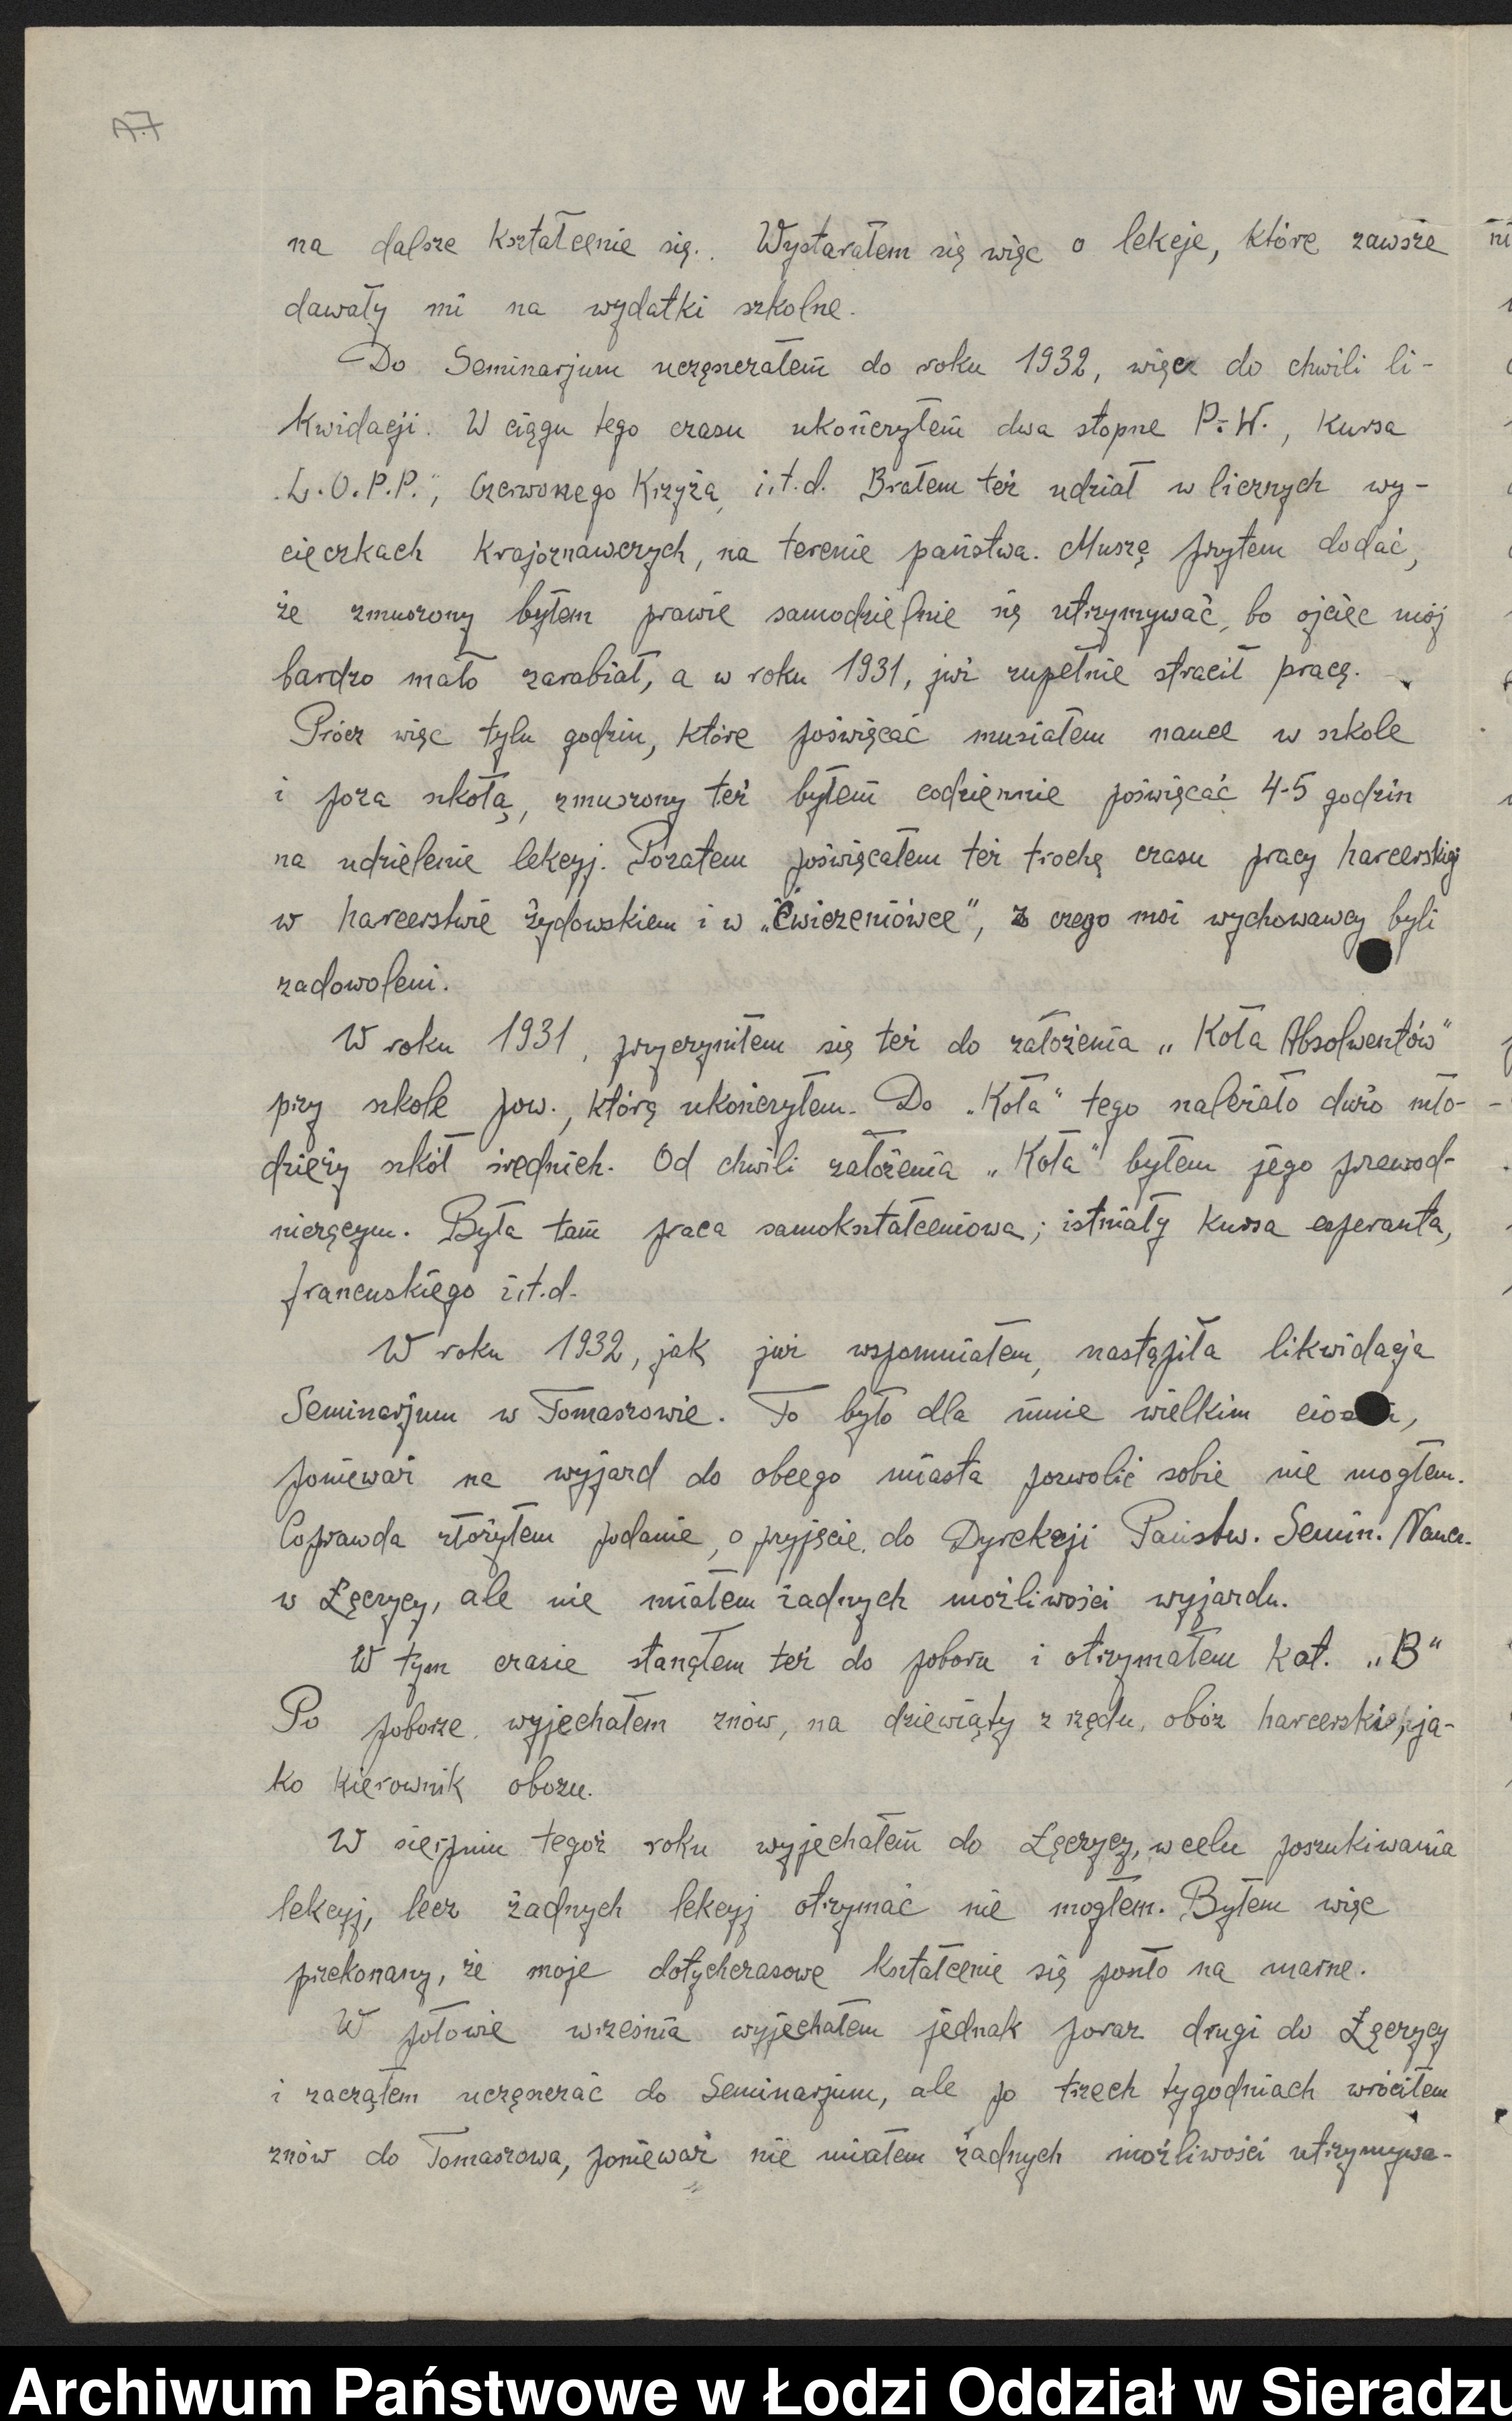 A.7
na dalsze kształcenie się. Wystarałem się więc o lekcje, które zawsze
dawały mi na wydatki szkolne.
Do Seminarjum uczęszczałem do roku 1932, więc do chwili li-
kwidacji. W ciągu tego czasu ukończyłem dwa stopne P.W., kursa
"L.O.P.P.", Czerwonego Krzyża, i.t.d. Brałem też udział w licznych wy-
cieczkach krajoznawczych, na terenie państwa. Muszę przytem dodać,
że zmuszony byłem prawie samodzielnie się utrzymywać, bo ojciec mój
bardzo mało zarabiał, a w roku 1931, już zupełnie stracił pracę.
Prócz więc tylu godzin, które poświęcać musiałem nauce w szkole
i poza szkołą, zmuszony też byłem codziennie poświęcać 4-5 godzin
na udzielenie lekcyj. Pozatem poświęcałem też trochę czasu pracy harcerskiej
w harcerstwie żydowskiem i w „Ćwiczeniówce", z czego moi wychowawcy byli
zadowoleni.
W roku 1931, przyczyniłem się też do założenia „Koła Absolwentów"
przy szkole pow., którą ukończyłem. Do „Koła" tego należało dużo mło-
dzieży szkół średnich. Od chwili założenia „Koła" byłem jego przewod-
niczącym. Była tam praca samokształceniowa; istniały kursa esperanta,
francuskiego i.t.d.
W roku 1932, jak już wspomniałem, nastąpiła likwidacja
Seminarjum w Tomaszowie. To było dla mnie wielkim
ponieważ na wyjazd do obcego miasta pozwolić sobie nie mogłem.
Coprawda złożyłem podanie, o przyjęcie, do Dyrekcji Państw. Semin. Naucz.
w Łęczycy, ale nie miałem żadnych możliwości wyjazdu.
W tym czasie stanąłem też do poboru i otrzymałem kat. „B"
Po poborze, wyjechałem znów, na dziewiąty z rzędu, obóz harcerski, ja-
ko kierownik obozu.
W sierpniu tegoż roku wyjechałem do Łęczycy, w celu poszukiwania
lekcyj, lecz żadnych lekcyj otrzymać nie mogłem. Byłem więc
przekonany, że moje dotychczasowe kształcenie się poszło na marne.
W połowie września wyjechałem jednak poraz drugi do Łęczycy
i zacząłem uczęszczać do Seminarjum, ale po trzech tygodniach wróciłem
znów do Tomaszowa, ponieważ nie miałem żadnych możliwości utrzymywa-
Archiwum Państwowe w Łodzi Oddział w Sieradzu